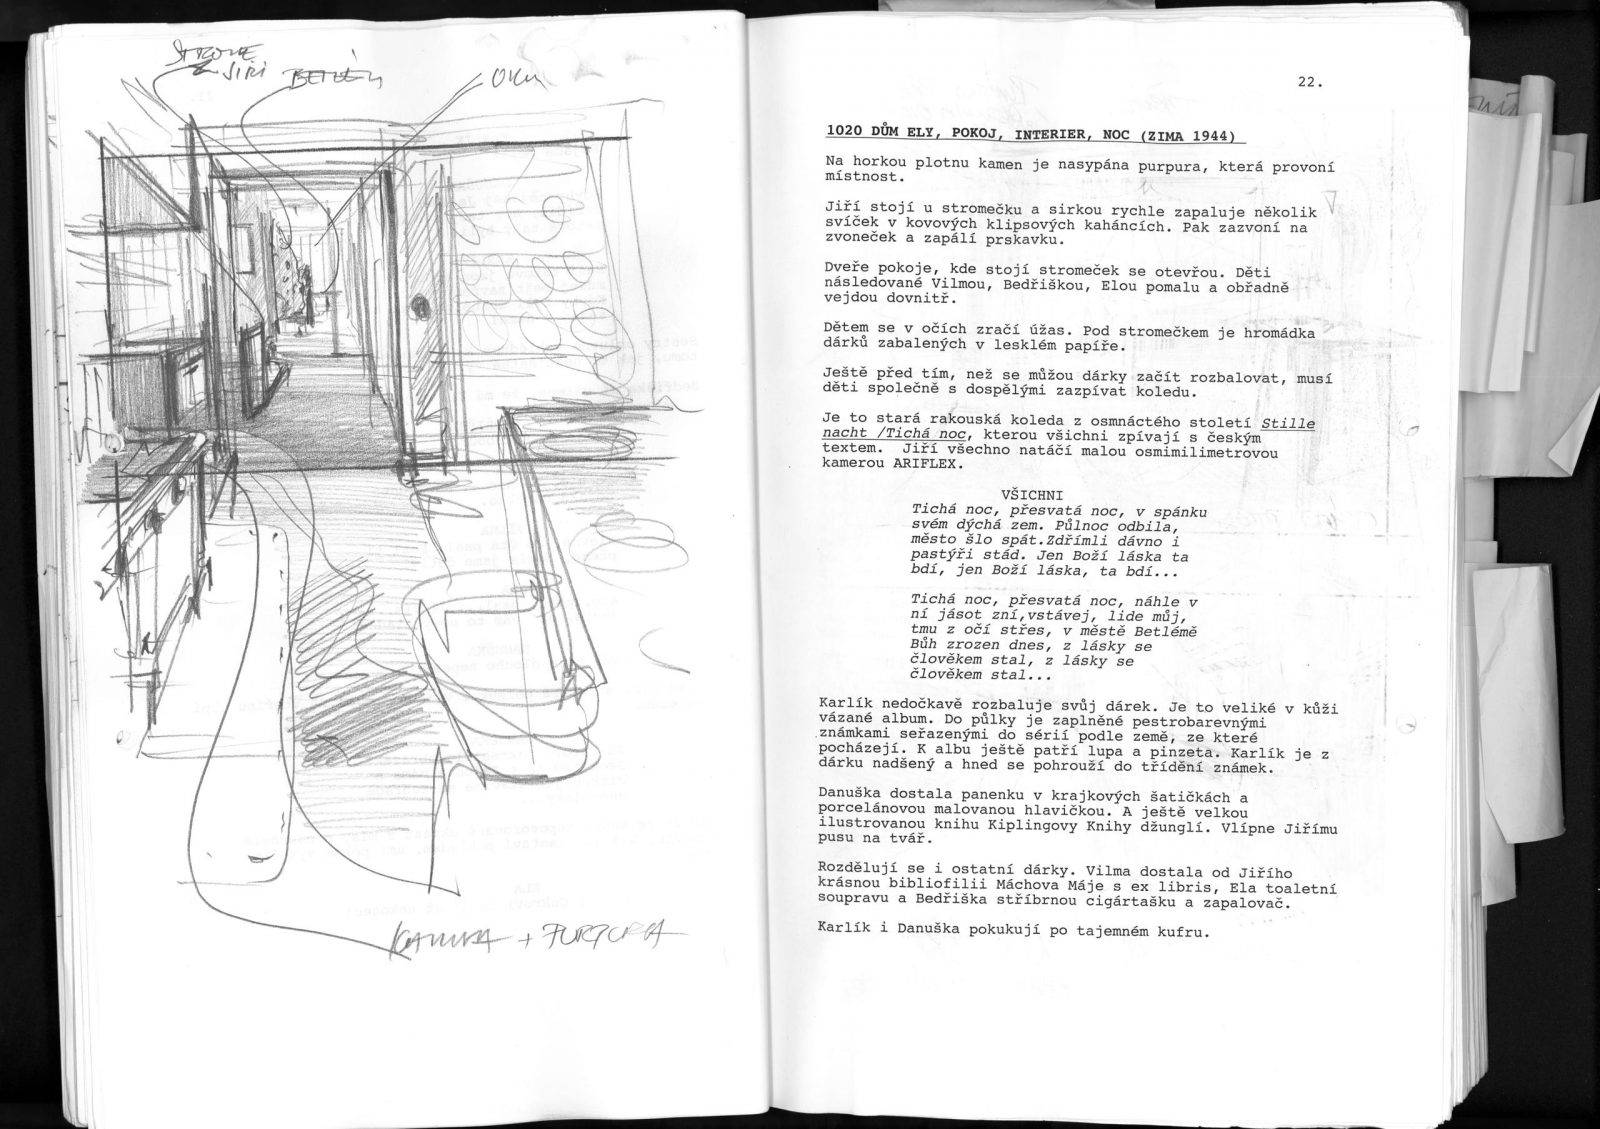 STROM
JIŘÍ
BETLÉM
KAMNA + PURPURA
22.
1020 DŮM ELY, POKOJ, INTERIER, NOC (ZIMA 1944)
Na horkou plotnu kamen je nasypána purpura, která provoní
místnost.
Jiří stojí u stromečku a sirkou rychle zapaluje několik
svíček v kovových klipsových kaháncích. Pak zazvoní na
zvoneček a zapálí prskavku.
Dveře pokoje, kde stojí stromeček se otevřou. Děti
následované Vilmou, Bedřiškou, Elou pomalu a obřadně
vejdou dovnitř.
Dětem se v očích zračí úžas. Pod stromečkem je hromádka
dárků zabalených v lesklém papíře.
Ještě před tím, než se můžou dárky začít rozbalovat, musí
děti společně s dospělými zazpívat koledu.
Je to stará rakouská koleda z osmnáctého století Stille
nacht /Tichá noc, kterou všichni zpívají s českým
textem.  Jiří všechno natáčí malou osmimilimetrovou
kamerou ARIFLEX.
VŠICHNI
Tichá noc, přesvatá noc, v spánku
svém dýchá zem. Půlnoc odbila,
město šlo spát.Zdřímli dávno i
pastýři stád. Jen Boží láska ta
bdí, jen Boží láska, ta bdí...
Tichá noc, přesvatá noc, náhle v
ní jásot zní,vstávej, lide můj,
tmu z očí střes, v městě Betlémě
Bůh zrozen dnes, z lásky se
člověkem stal, z lásky se
člověkem stal...
Karlík nedočkavě rozbaluje svůj dárek. Je to veliké v kůži
vázané album. Do půlky je zaplněné pestrobarevnými
známkami seřazenými do sérií podle země, ze které
pocházejí. K albu ještě patří lupa a pinzeta. Karlík je z
dárku nadšený a hned se pohrouží do třídění známek.
Danuška dostala panenku v krajkových šatičkách a
porcelánovou malovanou hlavičkou. A ještě velkou
ilustrovanou knihu Kiplingovy Knihy džunglí. Vlípne Jiřímu
pusu na tvář.
Rozdělují se i ostatní dárky. Vilma dostala od Jiřího
krásnou bibliofilii Máchova Máje s ex libris, Ela toaletní
soupravu a Bedřiška stříbrnou cigártašku a zapalovač.
Karlík i Danuška pokukují po tajemném kufru.